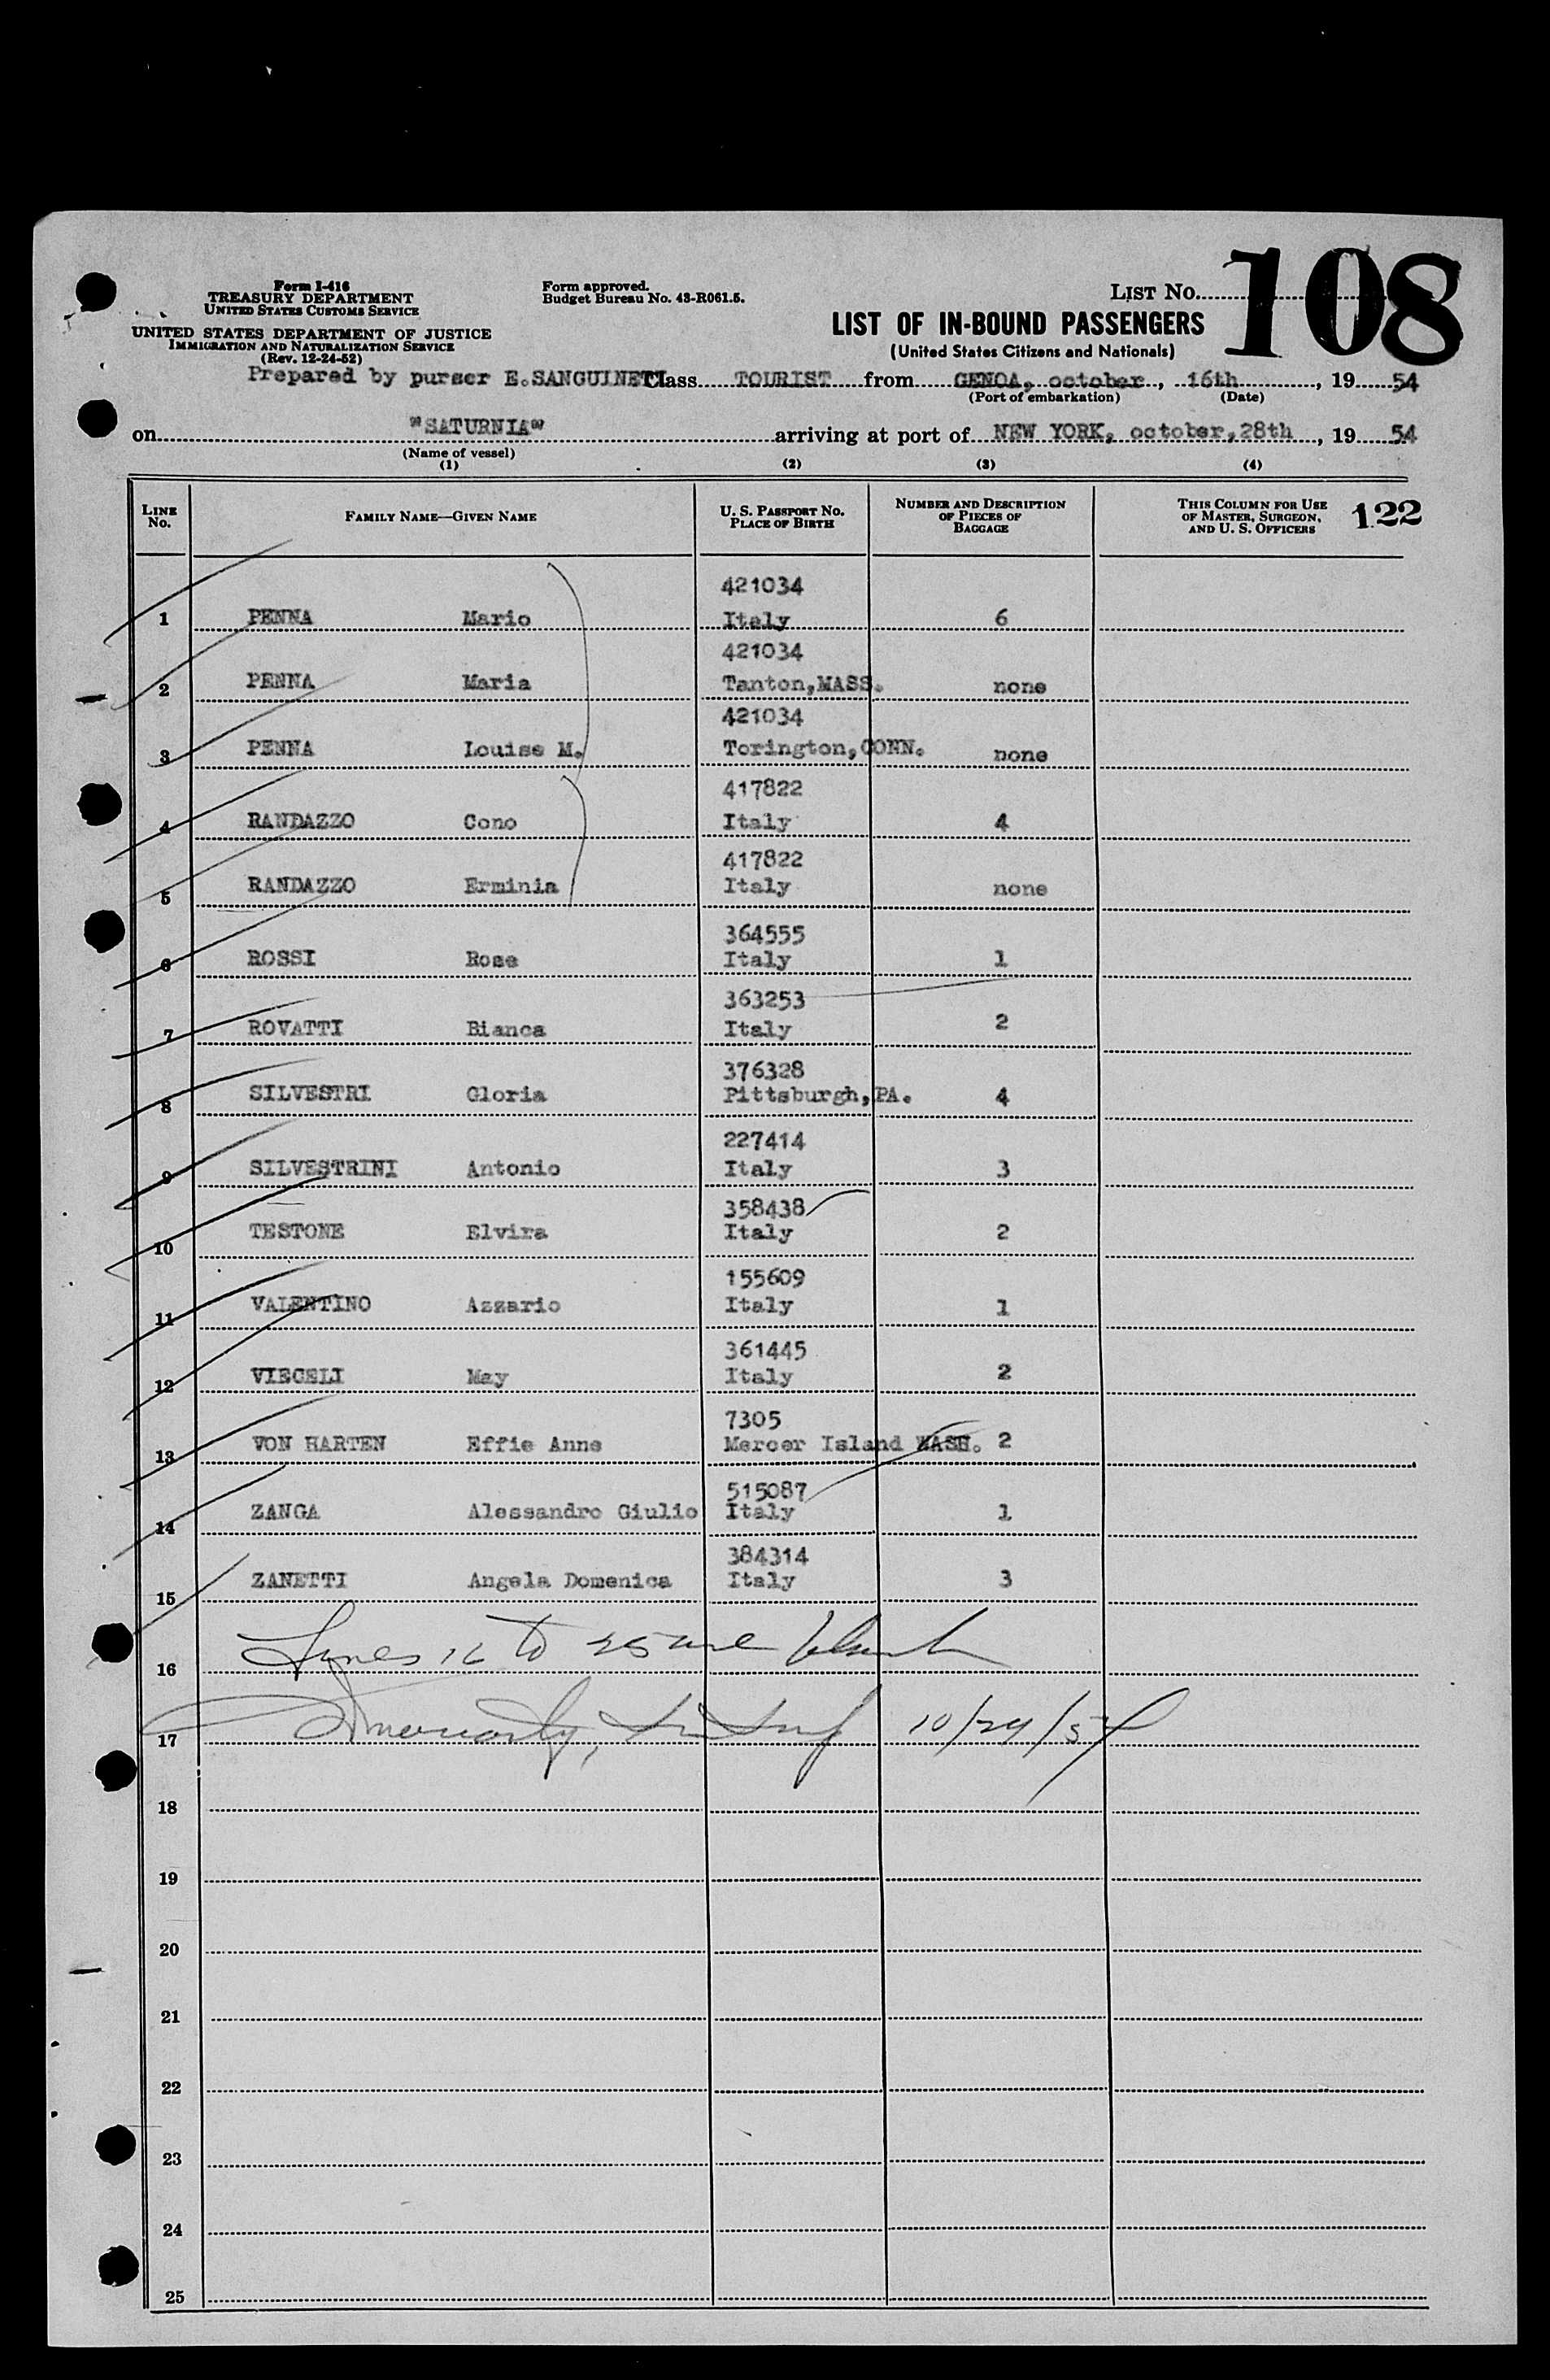 Form I-416
TREASURY DEPARTMENT
UNITED STATES CUSTOMS SERVICE
UNITED STATES DEPARTMENT OF JUSTICE
IMMIGRATION AND NATURALIZATION SERVICE
(Rev. 12-24-52)
Form approved.
Budget Bureau No. 43-R061.5.
LIST NO. 108
LIST OF IN-BOUND PASSENGERS
(United States Citizens and Nationals)
Prepared by purser E.SANGUINETI Class TOURIST from GENOA, october, 16th, 19 54
(Port of embarkation) (Date)
on "SATURNIA" arriving at port of NEW YORK, october, 28th, 19 54
(Name of vessel)
(1) (2) (3) (4)
LINE NO. FAMILY NAME—GIVEN NAME U. S. PASSPORT NO. PLACE OF BIRTH NUMBER AND DESCRIPTION OF PIECES OF BAGGAGE THIS COLUMN FOR USE OF MASTER, SURGEON, AND U. S. OFFICERS 122
421034
1 PENNA Mario Italy 6
421034
2 PENNA Maria Tanton,MASS. none
421034
3 PENNA Louise M. Torington,CONN. none
417822
4 RANDAZZO Cono Italy 4
417822
5 RANDAZZO Erminia Italy none
364555
6 ROSSI Rose Italy 1
363253
7 ROVATTI Bianca Italy 2
376328
8 SILVESTRI Gloria Pittsburgh,PA. 4
227414
9 SILVESTRINI Antonio Italy 3
358438
10 TESTONE Elvira Italy 2
155609
11 VALENTINO Azzario Italy 1
361445
12 VIECELI May Italy 2
7305
13 VON HARTEN Effie Anne Mercer Island WASH. 2
515087
14 ZANGA Alessandro Giulio Italy 1
384314
15 ZANETTI Angela Domenica Italy 3
16 Lines 16 to 25 are blank
17 10/29/54
18
19
20
21
22
23
24
25